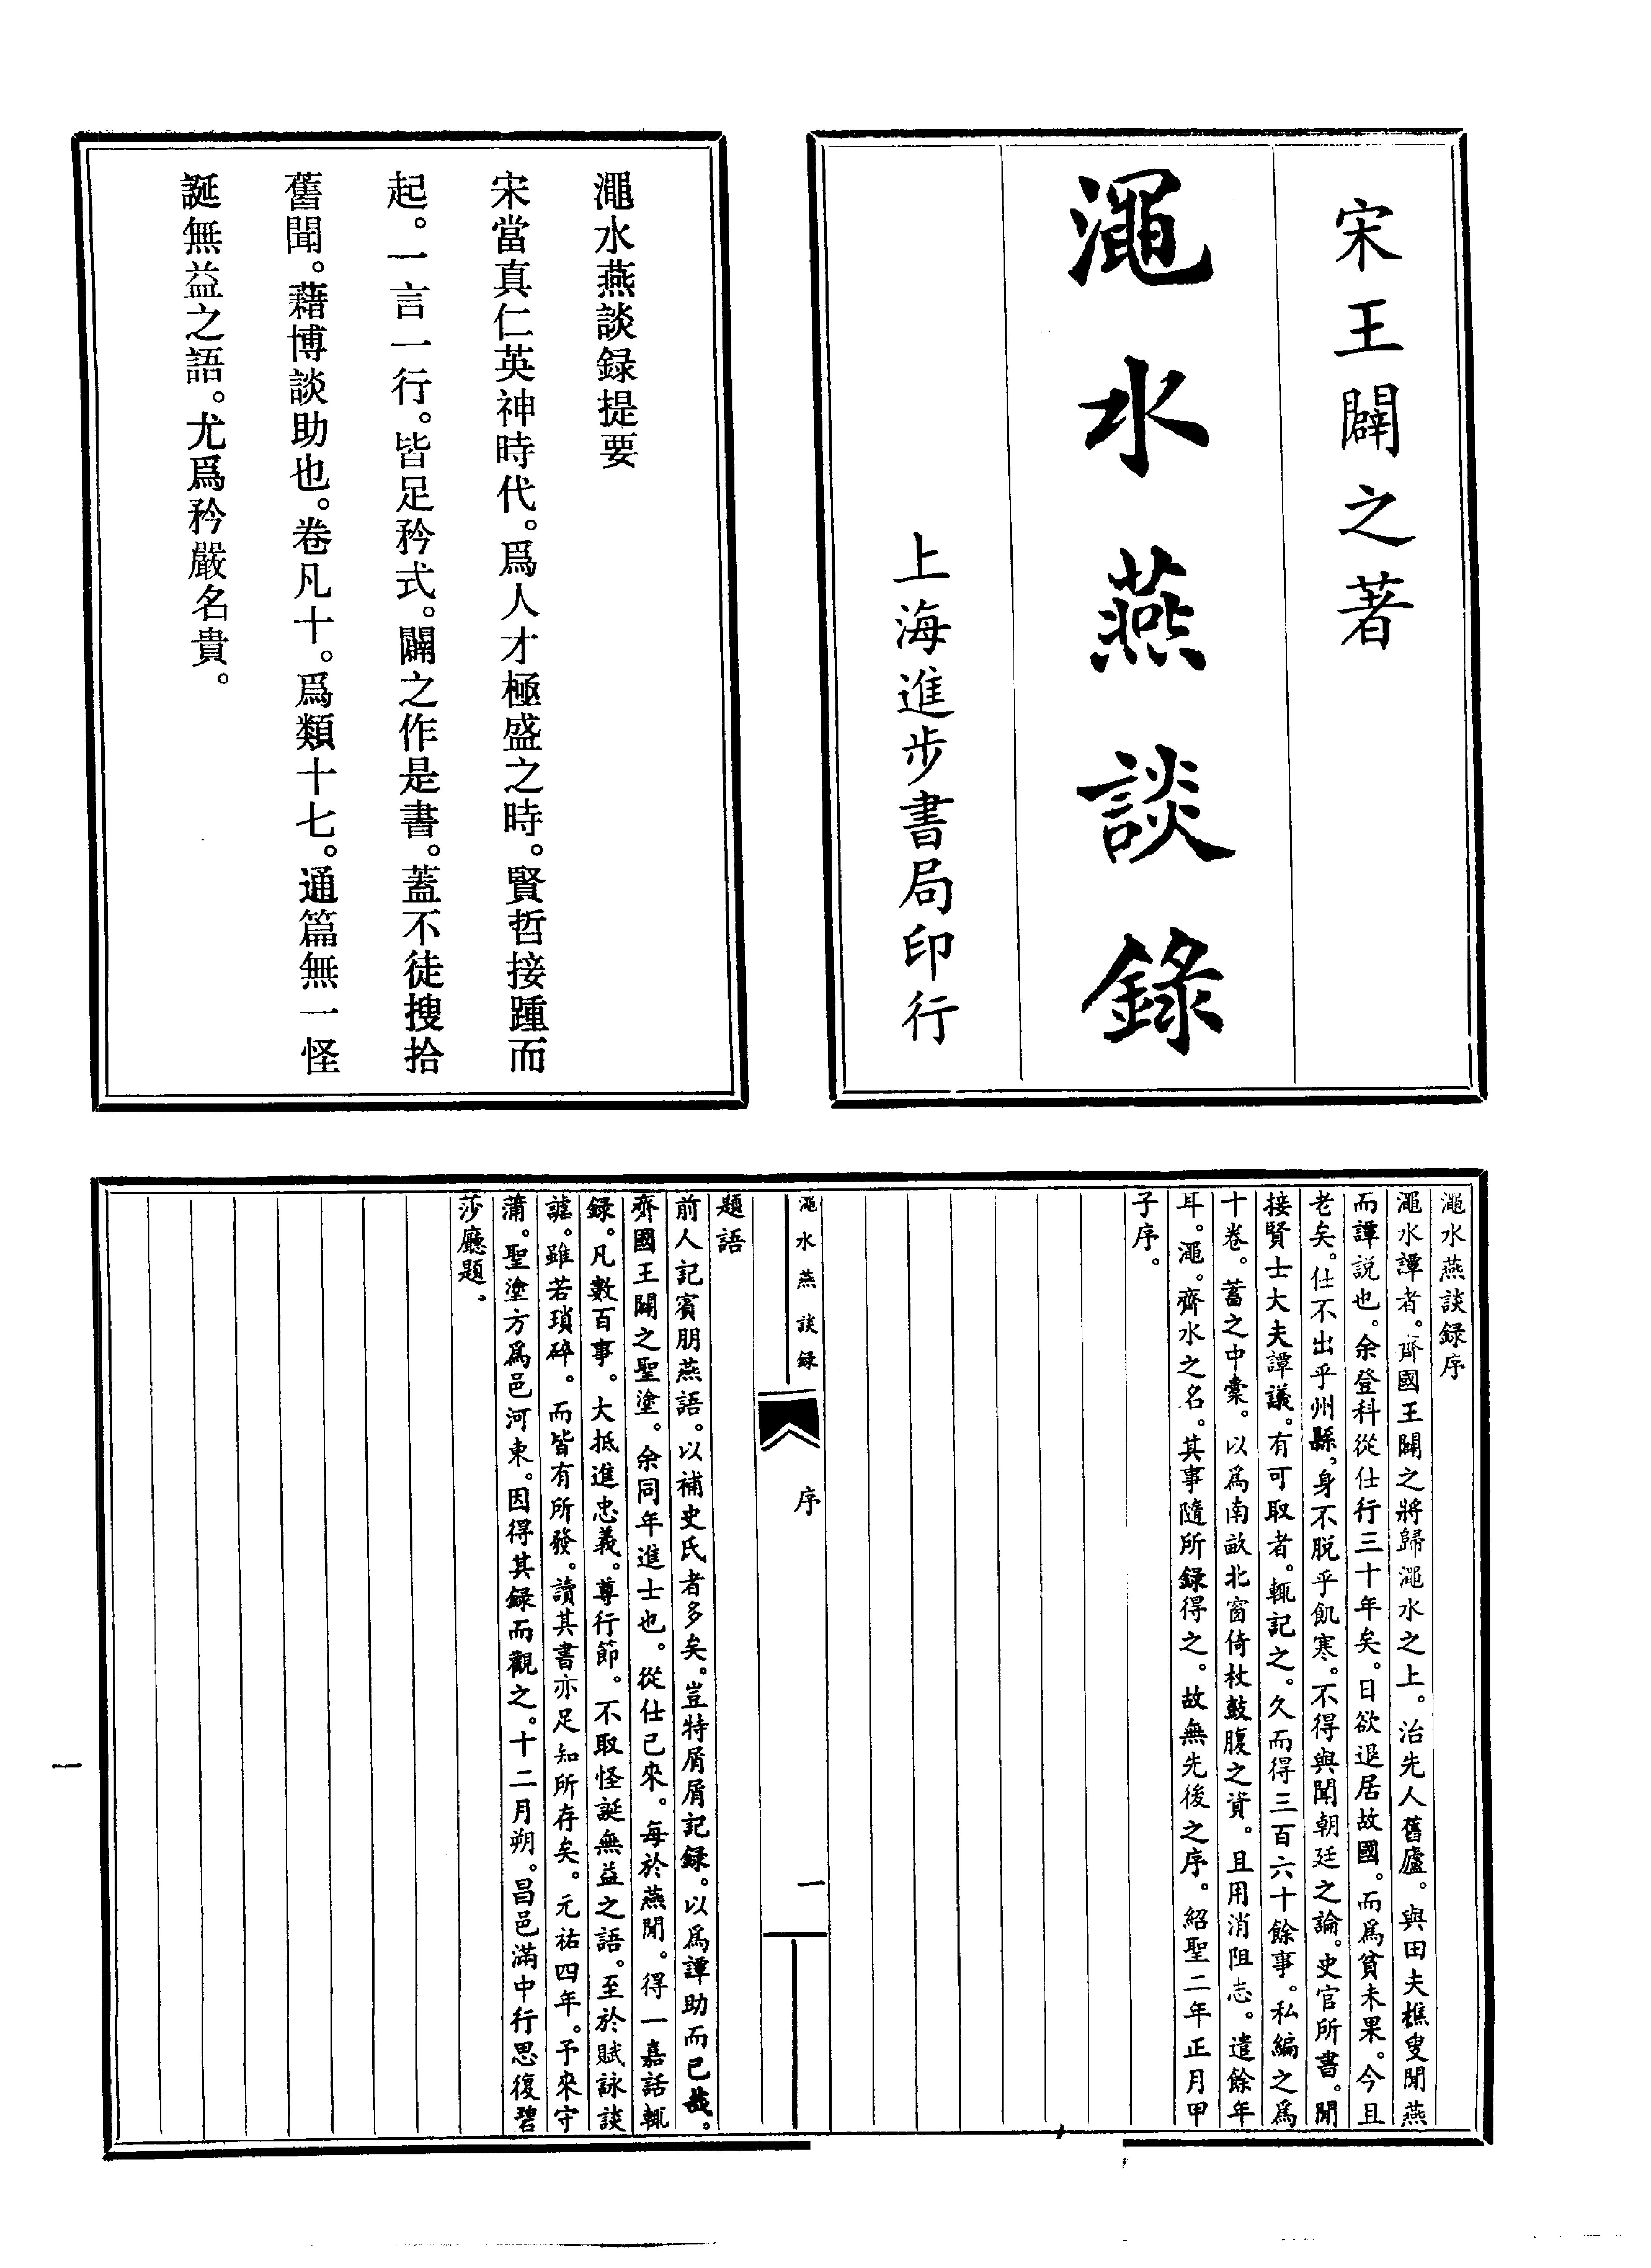 宋王闢之著
澠水燕談錄
上海進步書局印行
澠水燕談録提要
宋當真仁英神時代。爲人才極盛之時。賢哲接踵而
起。一言一行。皆足矜式。闢之作是書。蓋不徒搜拾
舊聞。藉博談助也。卷凡十。爲類十七。通篇無一怪
誕無益之語。尤爲矜嚴名貴。
澠水燕談録序
澠水譚者。齊國王闢之將歸澠水之上。治先人舊廬。與田夫樵叟閒燕
而譚説也。余登科從仕行三十年矣。日欲退居故國。而爲貧未果。今且
老矣。仕不出乎州縣。身不脱乎飢寒。不得與聞朝廷之論。史官所書。閒
接賢士大夫譚議。有可取者。輒記之。久而得三百六十餘事。私編之爲
十卷。蓄之中槖。以爲南畝北窗倚杖鼓腹之資。且用消阻志。遣餘年
耳。澠。齊水之名。其事隨所録得之。故無先後之序。紹聖二年正月甲
子序。
澠水燕談録
序
一
題語
前人記賓朋燕語。以補史氏者多矣。豈特屑屑記録。以爲譚助而已哉。
齊國王闢之聖塗。余同年進士也。從仕已來。每於燕閒。得一嘉話輒
録。凡數百事。大抵進忠義。尊行節。不取怪誕無益之語。至於賦詠談
謔。雖若瑣碎。而皆有所發。讀其書亦足知所存矣。元祐四年。予來守
蒲。聖塗方爲邑河東。因得其録而觀之。十二月朔。昌邑滿中行思復碧
莎廳題。
一